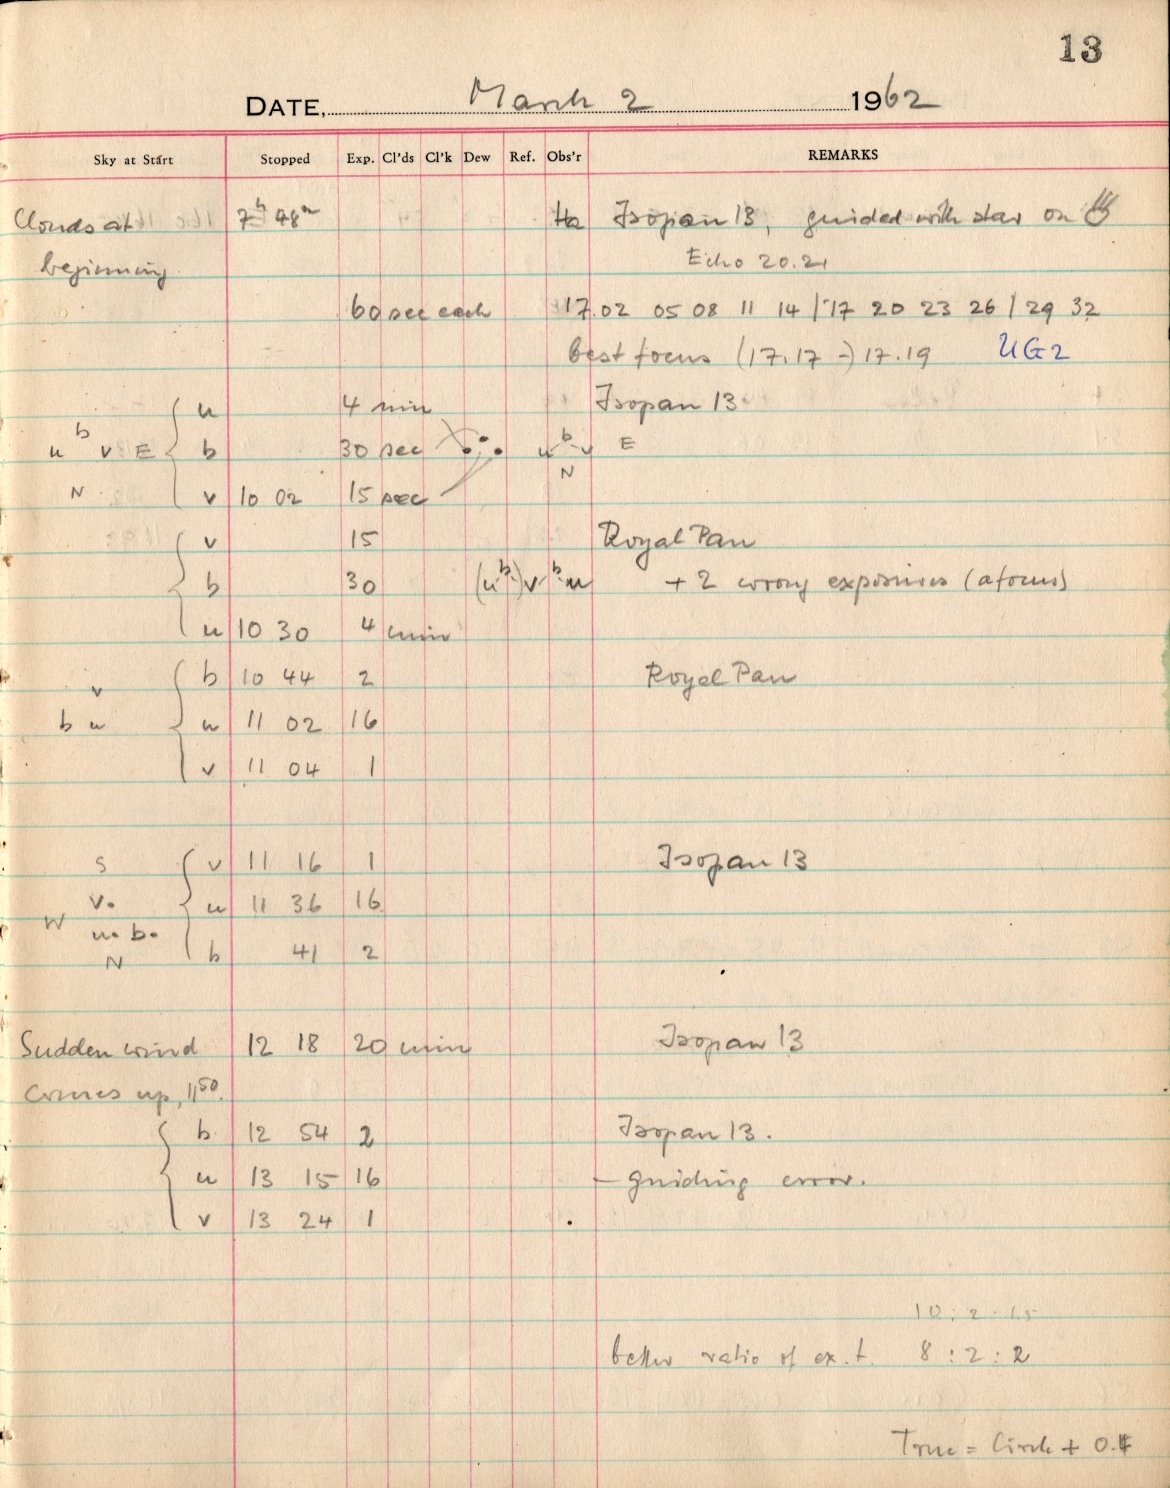 13
DATE, March 2 1962
Sky at Start Stopped Exp. Cl'ds Cl'k Dew Ref. Obs'r REMARKS
Clouds at 7h 48m Ha Isopan 13, guided with star on
beginning Echo 20.21
60 sec each 17.02 05 08 11 14 / 17 20 23 26 / 29 32
best focus (17.17 -) 17.19 UG2
u 4 min Isopan 13
u b v E b 30 sec u b v E
N v 10 02 15 sec N
v 15 Royal Pan
b 30 (u b) v b u + 2 wrong exposures (afocus)
u 10 30 4 min
v b 10 44 2 Royal Pan
b u u 11 02 16
v 11 04 1
S v 11 16 1 Isopan 13
v. u 11 36 16
W u. b.
N b 41 2
Sudden wind 12 18 20 min Isopan 13
comes up, 11 50.
b 12 54 2 Isopan 13.
u 13 15 16 - guiding error.
v 13 24 1
10 : 2 : 1.5
better ratio of ex. t. 8 : 2 : 2
True = Circle +